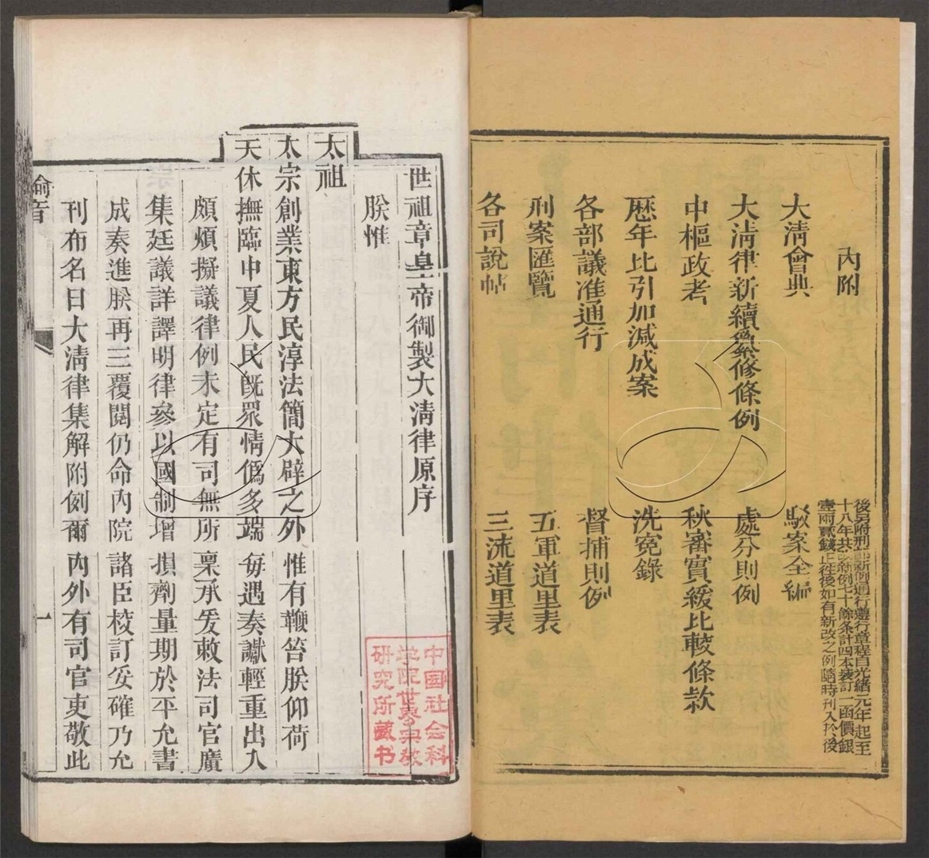 內附
大清會典
駁案全編
大清律新續纂修條例
處分則例
中樞政考
秋審實緩比較條款
歷年比引加減成案
洗冤錄
各部議准通行
督捕則例
刑案匯覽
五軍道里表
各司說帖
三流道里表
後另附刑部新例通行遵行章程自光緒元年起至
十八年共新例十條条計四本裝訂一函價銀
壹兩貳錢正往後如有新改之例隨時刊入於後
世祖章皇帝御製大清律原序
朕惟
太祖
太宗創業東方民淳法簡大辟之外惟有鞭笞朕仰荷
天休撫臨中夏人民既眾情偽多端每遇奏讞輕重出入
頗煩擬議律例未定有司無所稟承爰敕法司官廣
集廷議詳譯明律參以國制增損劑量期於平允書
成奏進朕再三覆閱仍命內院諸臣校訂妥確乃允
刊布名曰大清律集解附例爾內外有司官吏敬此
諭旨
一
中國社会科
学院世界宗教
研究所藏书